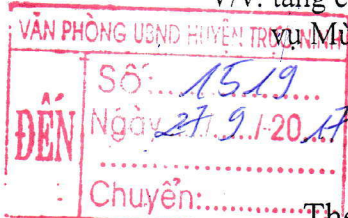 V/v: tăng c
vụ Mù
VĂN PHÒNG UBND HUYỆN TRỰC NINH
ĐẾN
Số:...1519...
Ngày 27/9/2017
Chuyển:...
The